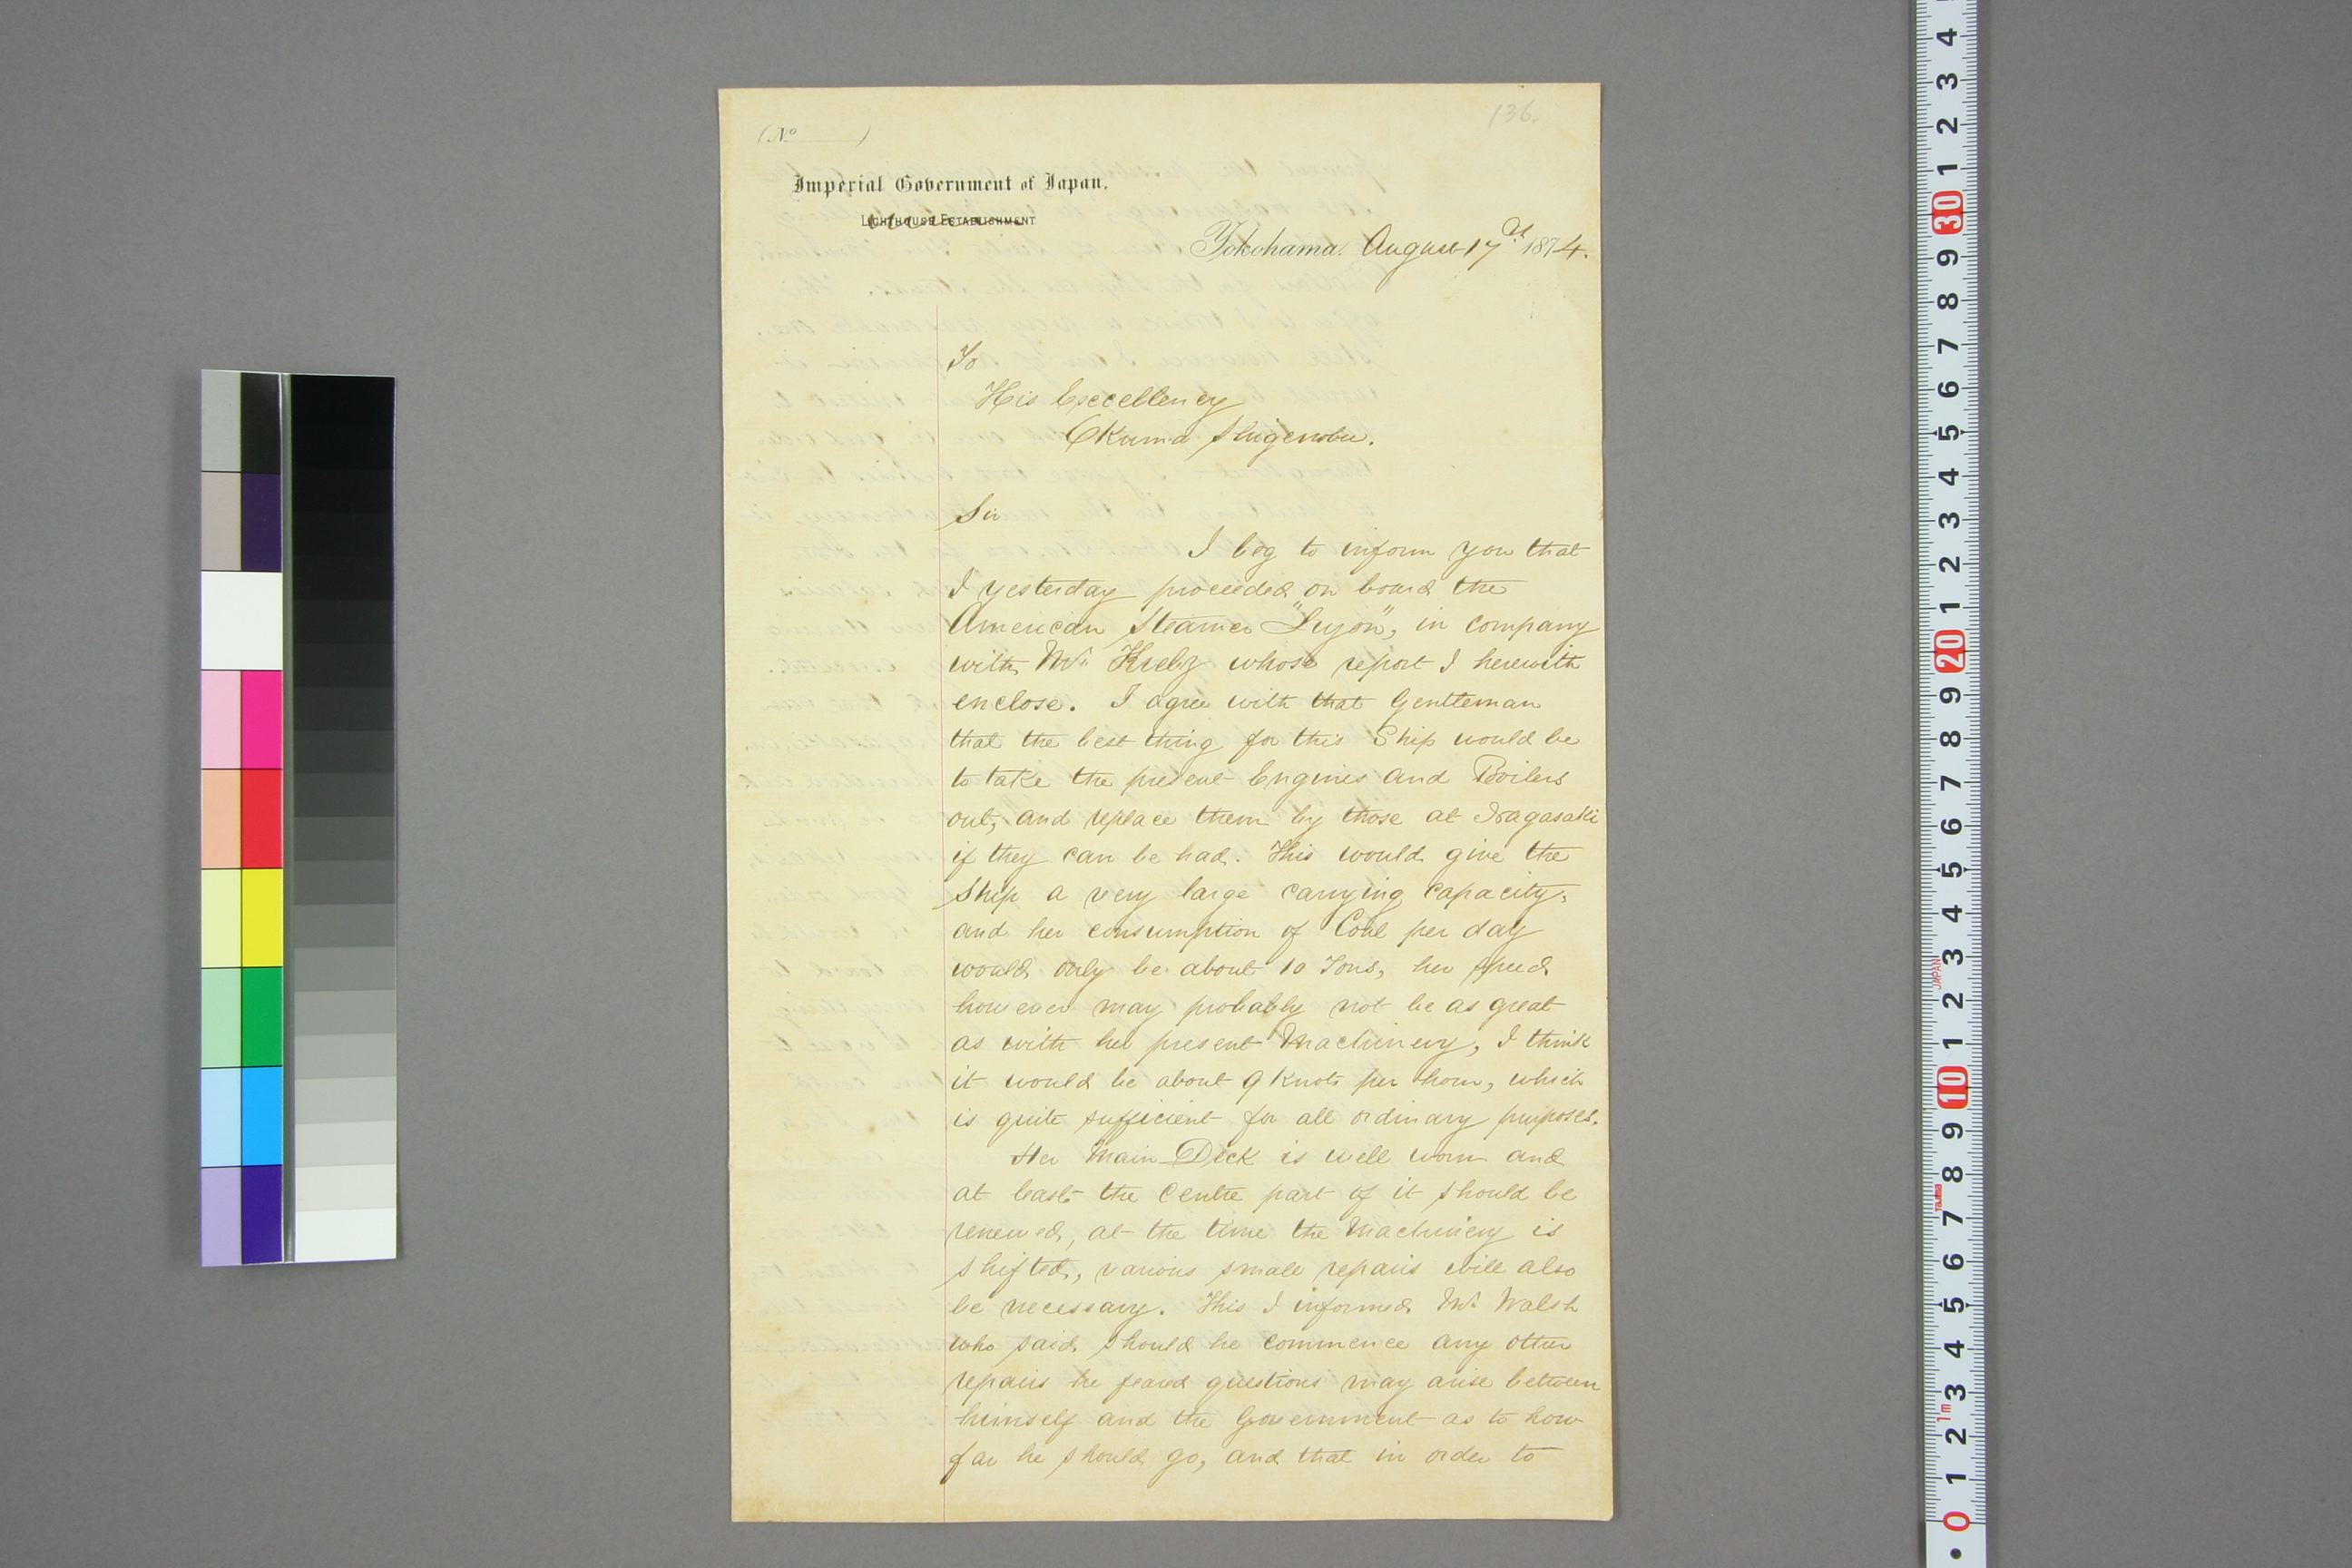 136.
(No )
Imperial Government of Japan.
LIGHTHOUSE ESTABLISHMENT
Yokohama. August 17th 1874.
To
His Excellency
Okuma Shigenobu.
Sir
I beg to inform you that
I yesterday proceeded on board the
American Steamer "Luzon", in company
with Mr. Krebz whose report I herewith
enclose. I agree with that Gentleman
that the best thing for this Ship would be
to take the present Engines and Boilers
out, and replace them by those at Nagasaki
if they can be had. This would give the
Ship a very large carrying capacity,
and her consumption of Coal per day
would only be about 10 Tons, her speed
however may probably not be as great
as with her present Machinery, I think
it would be about 9 Knots per hour, which
is quite sufficient for all ordinary purposes.
Her Main Deck is well worn and
at least the Centre part of it should be
renewed, at the time the Machinery is
shifted, various small repairs will also
be necessary. This I informed Mr. Walsh
who said should he commence any other
repairs he feared questions may arise between
himself and the Government as to how
far he should go, and that in order to
JAPAN
1m
0 1 2 3 4 5 6 7 8 9 10 1 2 3 4 5 6 7 8 9 20 1 2 3 4 5 6 7 8 9 30 1 2 3 4